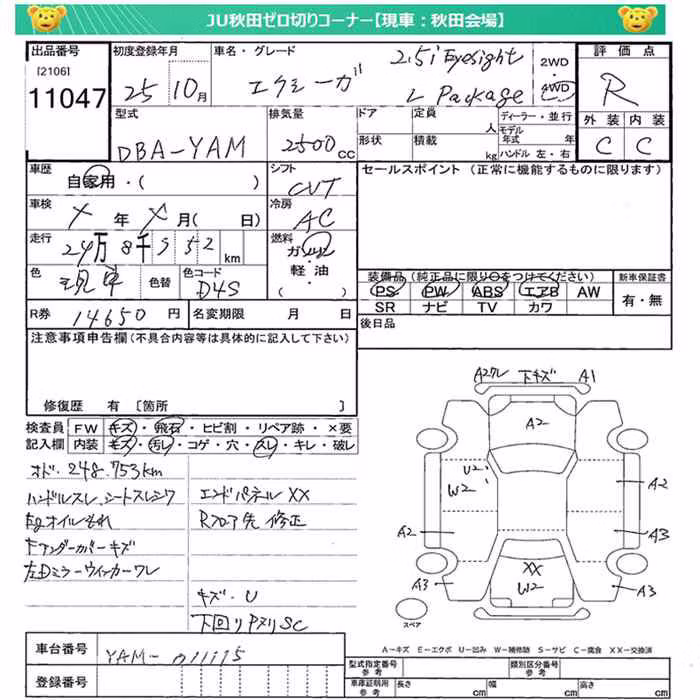 JU秋田ゼロ切りコーナー【現車：秋田会場】
出品番号 初度登録年月 車名・グレード 評価点
[2106] 11047
25 10月 エクシーガ 2.5i Eyesight L Package 2WD 4WD R
型式 排気量 ドア 定員 ディーラー・並行 外装 内装
DBA-YAM 2500cc 人 モデル年式 年 C C
形状 積載 kg ハンドル 左・右
車歴 シフト セールスポイント (正常に機能するものに限ります)
自家用・( ) CVT
車検 冷房
X 年 X 月( 日) AC
走行 燃料
24万8千952km ガソリン
軽・油
・( )
色 色替 色コード
現車 D4S
装備品(純正品に限り○をつけてください) 新車保証書
PS PW ABS エアB AW 有・無
SR ナビ TV カワ
R券 14650円 名変期限 月 日
後日品
注意事項申告欄(不具合内容等は具体的に記入して下さい)
修復歴 有 〔箇所 〕
検査員 FW キズ・飛石・ヒビ割・リペア跡・×要
記入欄 内装 キズ・汚レ・コゲ・穴・スレ・キレ・破レ
オド・248.753km
ハンドルスレ、シートスレシワ エンドパネルXX
Egオイルもれ Rフロア先修正
Fアンダーカバーキズ
左Dミラーウィンカーワレ
キズ・U
下回りPヌリSC
A2クレ 下キズ A1
A2
U2
W2 A2
A2 A3
XX
A3 W2 A3
スペア
A-キズ E-エクボ U-凹み W-補修跡 S-サビ C-腐食 XX-交換済
車台番号 YAM-011115
型式指定番号 参考 類別区分番号 参考
登録番号 車庫証明用 参考 長さ cm 幅 cm 高さ cm